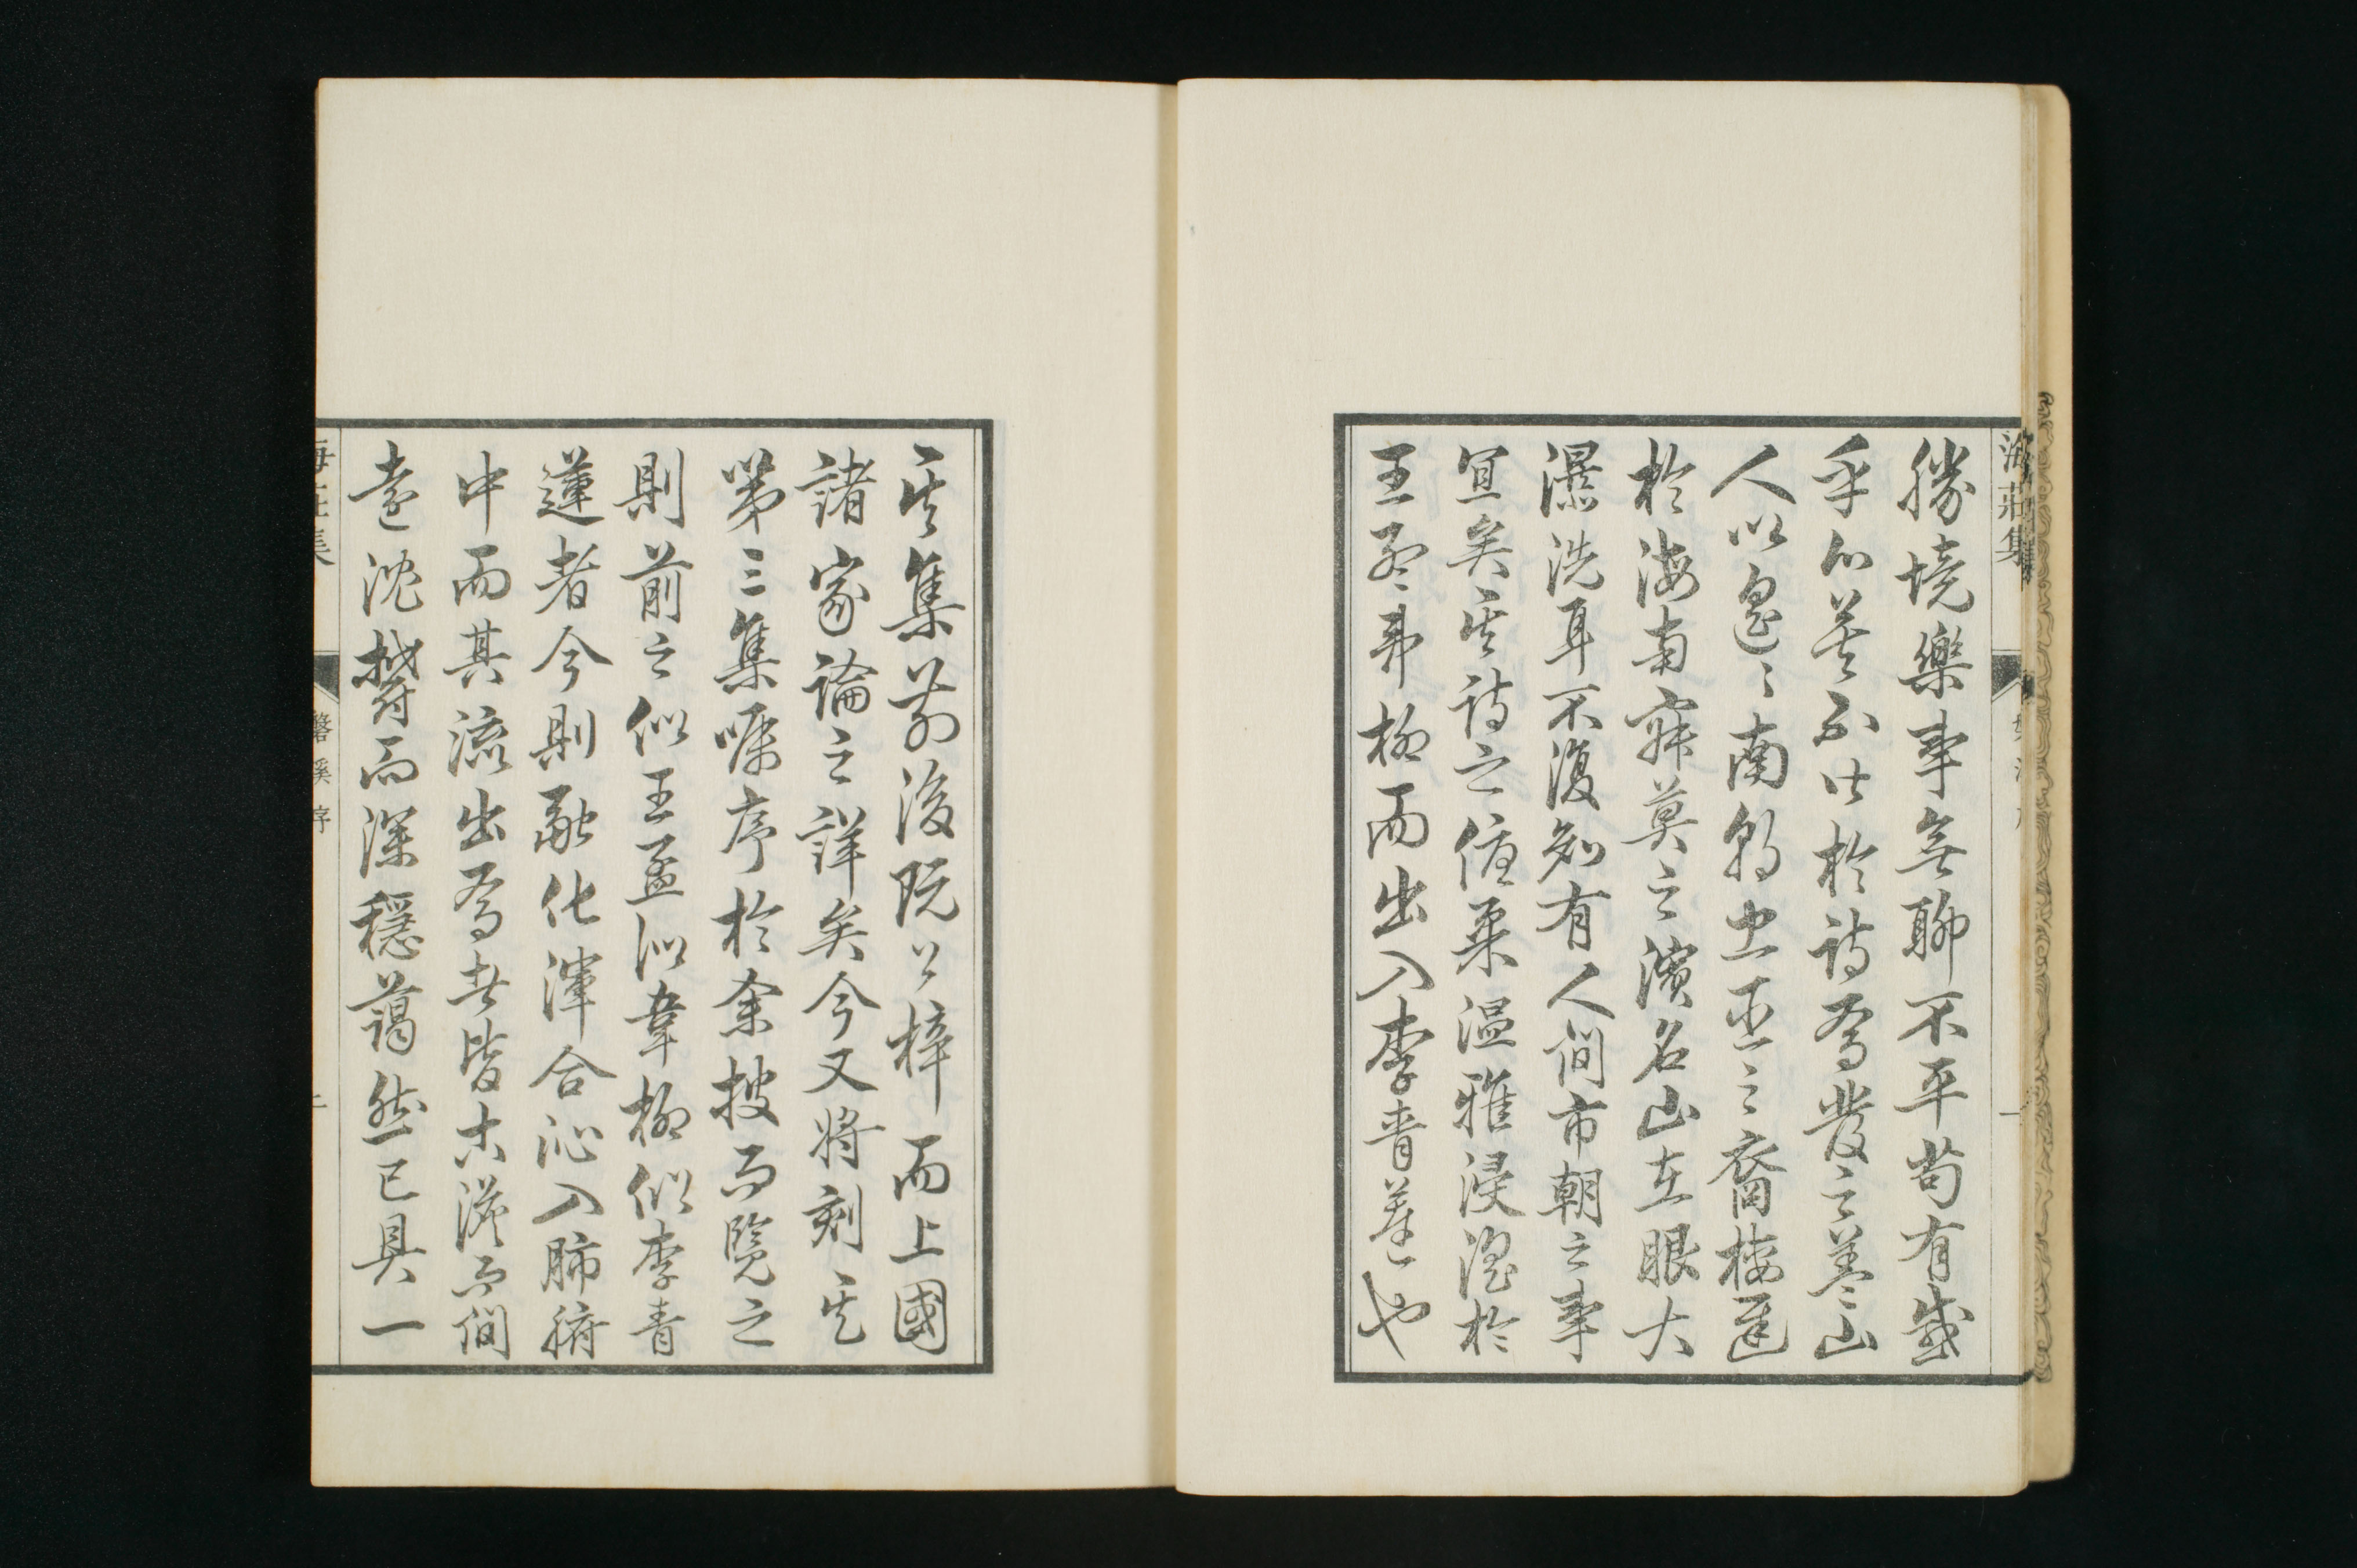 海莊集
一
勝境樂事無聊不平苟有感
乎心莫不以於詩焉發之蓋山
人以邑邑南朝忠臣之裔棲遲
於海南寂莫之濱名山在眼大
瀑洗耳不復知有人間市朝之事
宜矣其詩之優柔溫雅浸淫於
王孟韋柳而出入李青蓮也
其集前後既公梓而上國
諸家論之詳矣今又將刻其
第三集囑序於余披而覽之
則前之似王孟似韋柳似李青
蓮者今則融化渾合沁入肺腑
中而其流出焉者皆古澹而簡
遠沈鬱而深穩藹然已具一
海莊集
磐溪序
二